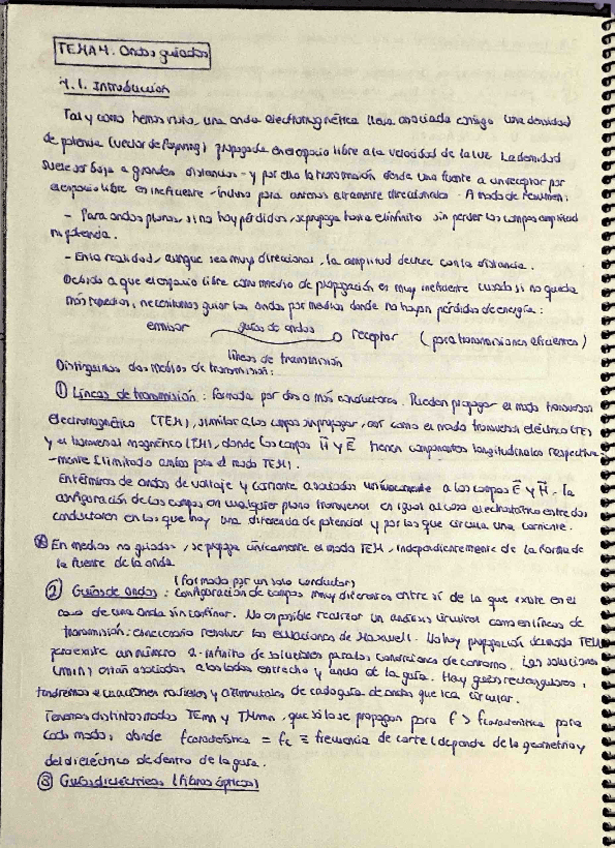 TEMA 4. Ondas guiadas
4.1. Introducción
Tal y como hemos visto, una onda electromagnética lleva asociada consigo una densidad
de potencia (vector de Poynting) propagada en espacio libre a la velocidad de la luz. La densidad
suele ser baja a grandes distancias - y por ello la transmisión desde una fuente a un receptor por
espacio libre es ineficiente - incluso para antenas altamente direccionales. A modo de resumen:
- Para ondas planas, si no hay pérdidas, se propaga hasta el infinito sin perder los campos amplitud
ni potencia.
- En la realidad, aunque sea muy direccional, la amplitud decrece con la distancia.
Debido a que el espacio libre como medio de propagación es muy ineficiente cuando si no queda
más remedio, necesitamos guiar las ondas por medios donde no hayan pérdidas de energía:
emisor guías de ondas receptor (para transmisiones eficientes)
líneas de transmisión
Distinguimos dos medios de transmisión:
① Líneas de transmisión: formada por dos o más conductores. Pueden propagar el modo transversal
electromagnético (TEM), similar a los campos sin propagar, así como el modo transversal eléctrico (TE)
y el transversal magnético (TM), donde los campos H y E tienen componentes longitudinales respectiva
-mente (limitado ambos por el modo TEM).
En términos de ondas de voltaje y corriente asociados unívocamente a los campos E y H. La
configuración de los campos en cualquier plano transversal es igual al caso electrostático entre dos
conductores en los que hay una diferencia de potencial y por los que circula una corriente.
En medios no guiados, se propaga únicamente el modo TEM, independientemente de la forma de
la fuente de la onda.
(formado por un solo conductor)
② Guías de ondas: Configuración de campos muy diferentes entre sí de la que existe en el
caso de una onda sin confinar. No es posible realizar un análisis circuital como en líneas de
transmisión: es necesario resolver las ecuaciones de Maxwell. No hay propagación de modo TEM
pero existe un número infinito de soluciones para las condiciones de contorno. Las soluciones
(m,n) están asociados a los lados estrecho y ancho de la guía. Hay guías rectangulares,
tendremos ecuaciones radiales y azimutales de cada guía de ondas que sea circular.
Tenemos distintos modos TEmn y TMmn, que sólo se propagan para f > fcaracterística para
cada modo, donde fcaracterística = fc ≡ frecuencia de corte (depende de la geometría y
del dieléctrico de dentro de la guía.
③ Guías dieléctricas (fibras ópticas)